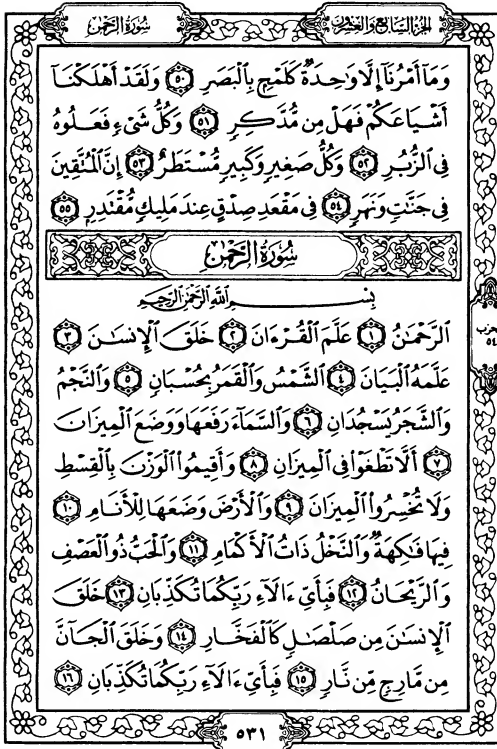 سُورَةُ الرَّحْمٰن
الجُزْءُ السَّابِعُ وَالعِشْرُون
وَمَآ أَمْرُنَآ إِلَّا وَٰحِدَةٌ كَلَمْحٍۭ بِٱلْبَصَرِ ٥٠ وَلَقَدْ أَهْلَكْنَآ
أَشْيَاعَكُمْ فَهَلْ مِن مُّدَّكِرٍ ٥١ وَكُلُّ شَىْءٍ فَعَلُوهُ
فِى ٱلزُّبُرِ ٥٢ وَكُلُّ صَغِيرٍ وَكَبِيرٍ مُّسْتَطَرٌ ٥٣ إِنَّ ٱلْمُتَّقِينَ
فِى جَنَّٰتٍ وَنَهَرٍ ٥٤ فِى مَقْعَدِ صِدْقٍ عِندَ مَلِيكٍ مُّقْتَدِرٍۭ ٥٥
سُورَةُ الرَّحْمٰن
بِسْمِ ٱللَّهِ ٱلرَّحْمَٰنِ ٱلرَّحِيمِ
ٱلرَّحْمَٰنُ ١ عَلَّمَ ٱلْقُرْءَانَ ٢ خَلَقَ ٱلْإِنسَٰنَ ٣
عَلَّمَهُ ٱلْبَيَانَ ٤ ٱلشَّمْسُ وَٱلْقَمَرُ بِحُسْبَانٍ ٥ وَٱلنَّجْمُ
وَٱلشَّجَرُ يَسْجُدَانِ ٦ وَٱلسَّمَآءَ رَفَعَهَا وَوَضَعَ ٱلْمِيزَانَ
٧ أَلَّا تَطْغَوْا۟ فِى ٱلْمِيزَانِ ٨ وَأَقِيمُوا۟ ٱلْوَزْنَ بِٱلْقِسْطِ
وَلَا تُخْسِرُوا۟ ٱلْمِيزَانَ ٩ وَٱلْأَرْضَ وَضَعَهَا لِلْأَنَامِ ١٠
فِيهَا فَٰكِهَةٌ وَٱلنَّخْلُ ذَاتُ ٱلْأَكْمَامِ ١١ وَٱلْحَبُّ ذُو ٱلْعَصْفِ
وَٱلرَّيْحَانُ ١٢ فَبِأَىِّ ءَالَآءِ رَبِّكُمَا تُكَذِّبَانِ ١٣ خَلَقَ
ٱلْإِنسَٰنَ مِن صَلْصَٰلٍ كَٱلْفَخَّارِ ١٤ وَخَلَقَ ٱلْجَآنَّ
مِن مَّارِجٍ مِّن نَّارٍ ١٥ فَبِأَىِّ ءَالَآءِ رَبِّكُمَا تُكَذِّبَانِ ١٦
حزب
٥٤
٥٣١